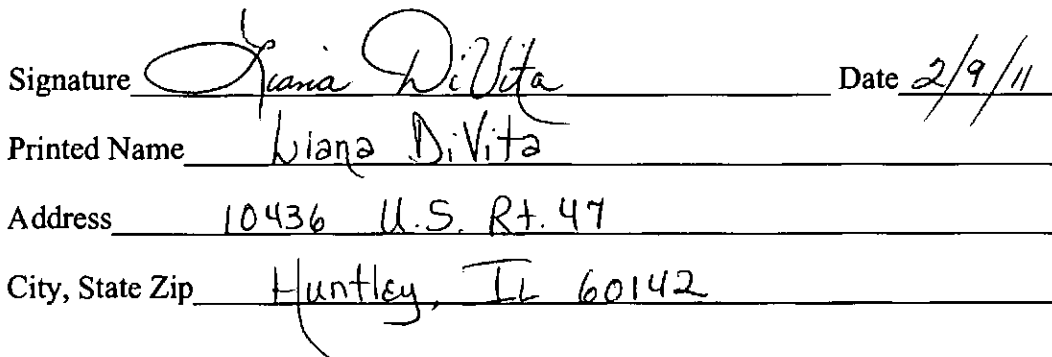 Signature Liana DiVita Date 2/9/11
Printed Name Liana DiVita
Address 10436 U.S. Rt. 47
City, State Zip Huntley, IL 60142